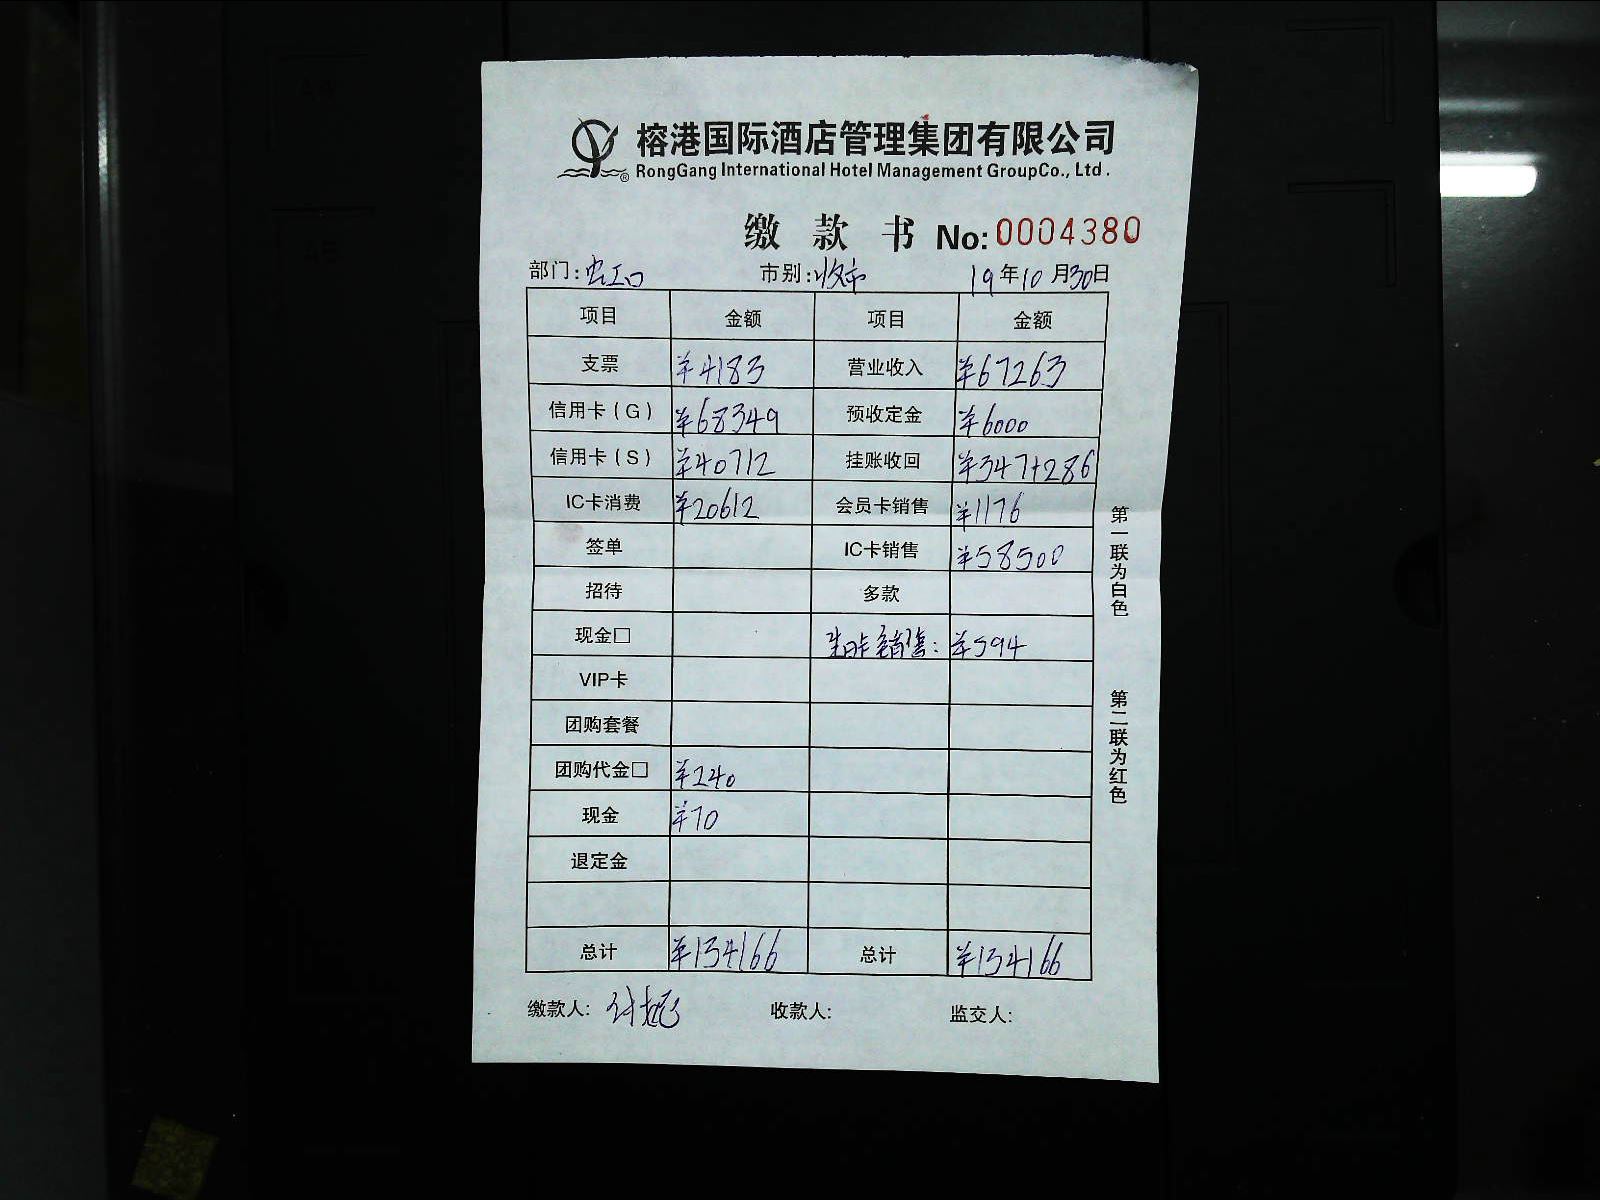 榕港国际酒店管理集团有限公司
®RongGang International Hotel Management GroupCo., Ltd.
缴款书 No:0004380
部门:虹口 市别:收市 19年10月30日
项目 金额 项目 金额
支票 ¥4183 营业收入 ¥67263
信用卡(G) ¥68349 预收定金 ¥6000
信用卡(S) ¥40712 挂账收回 ¥347+286
IC卡消费 ¥20612 会员卡销售 ¥1176
签单 IC卡销售 ¥58500
招待 多款
现金□ 生日卡销售: ¥594
VIP卡
团购套餐
团购代金□ ¥240
现金 ¥70
退定金
总计 ¥134166 总计 ¥134166
缴款人: 收款人: 监交人:
第一联为白色
第二联为红色